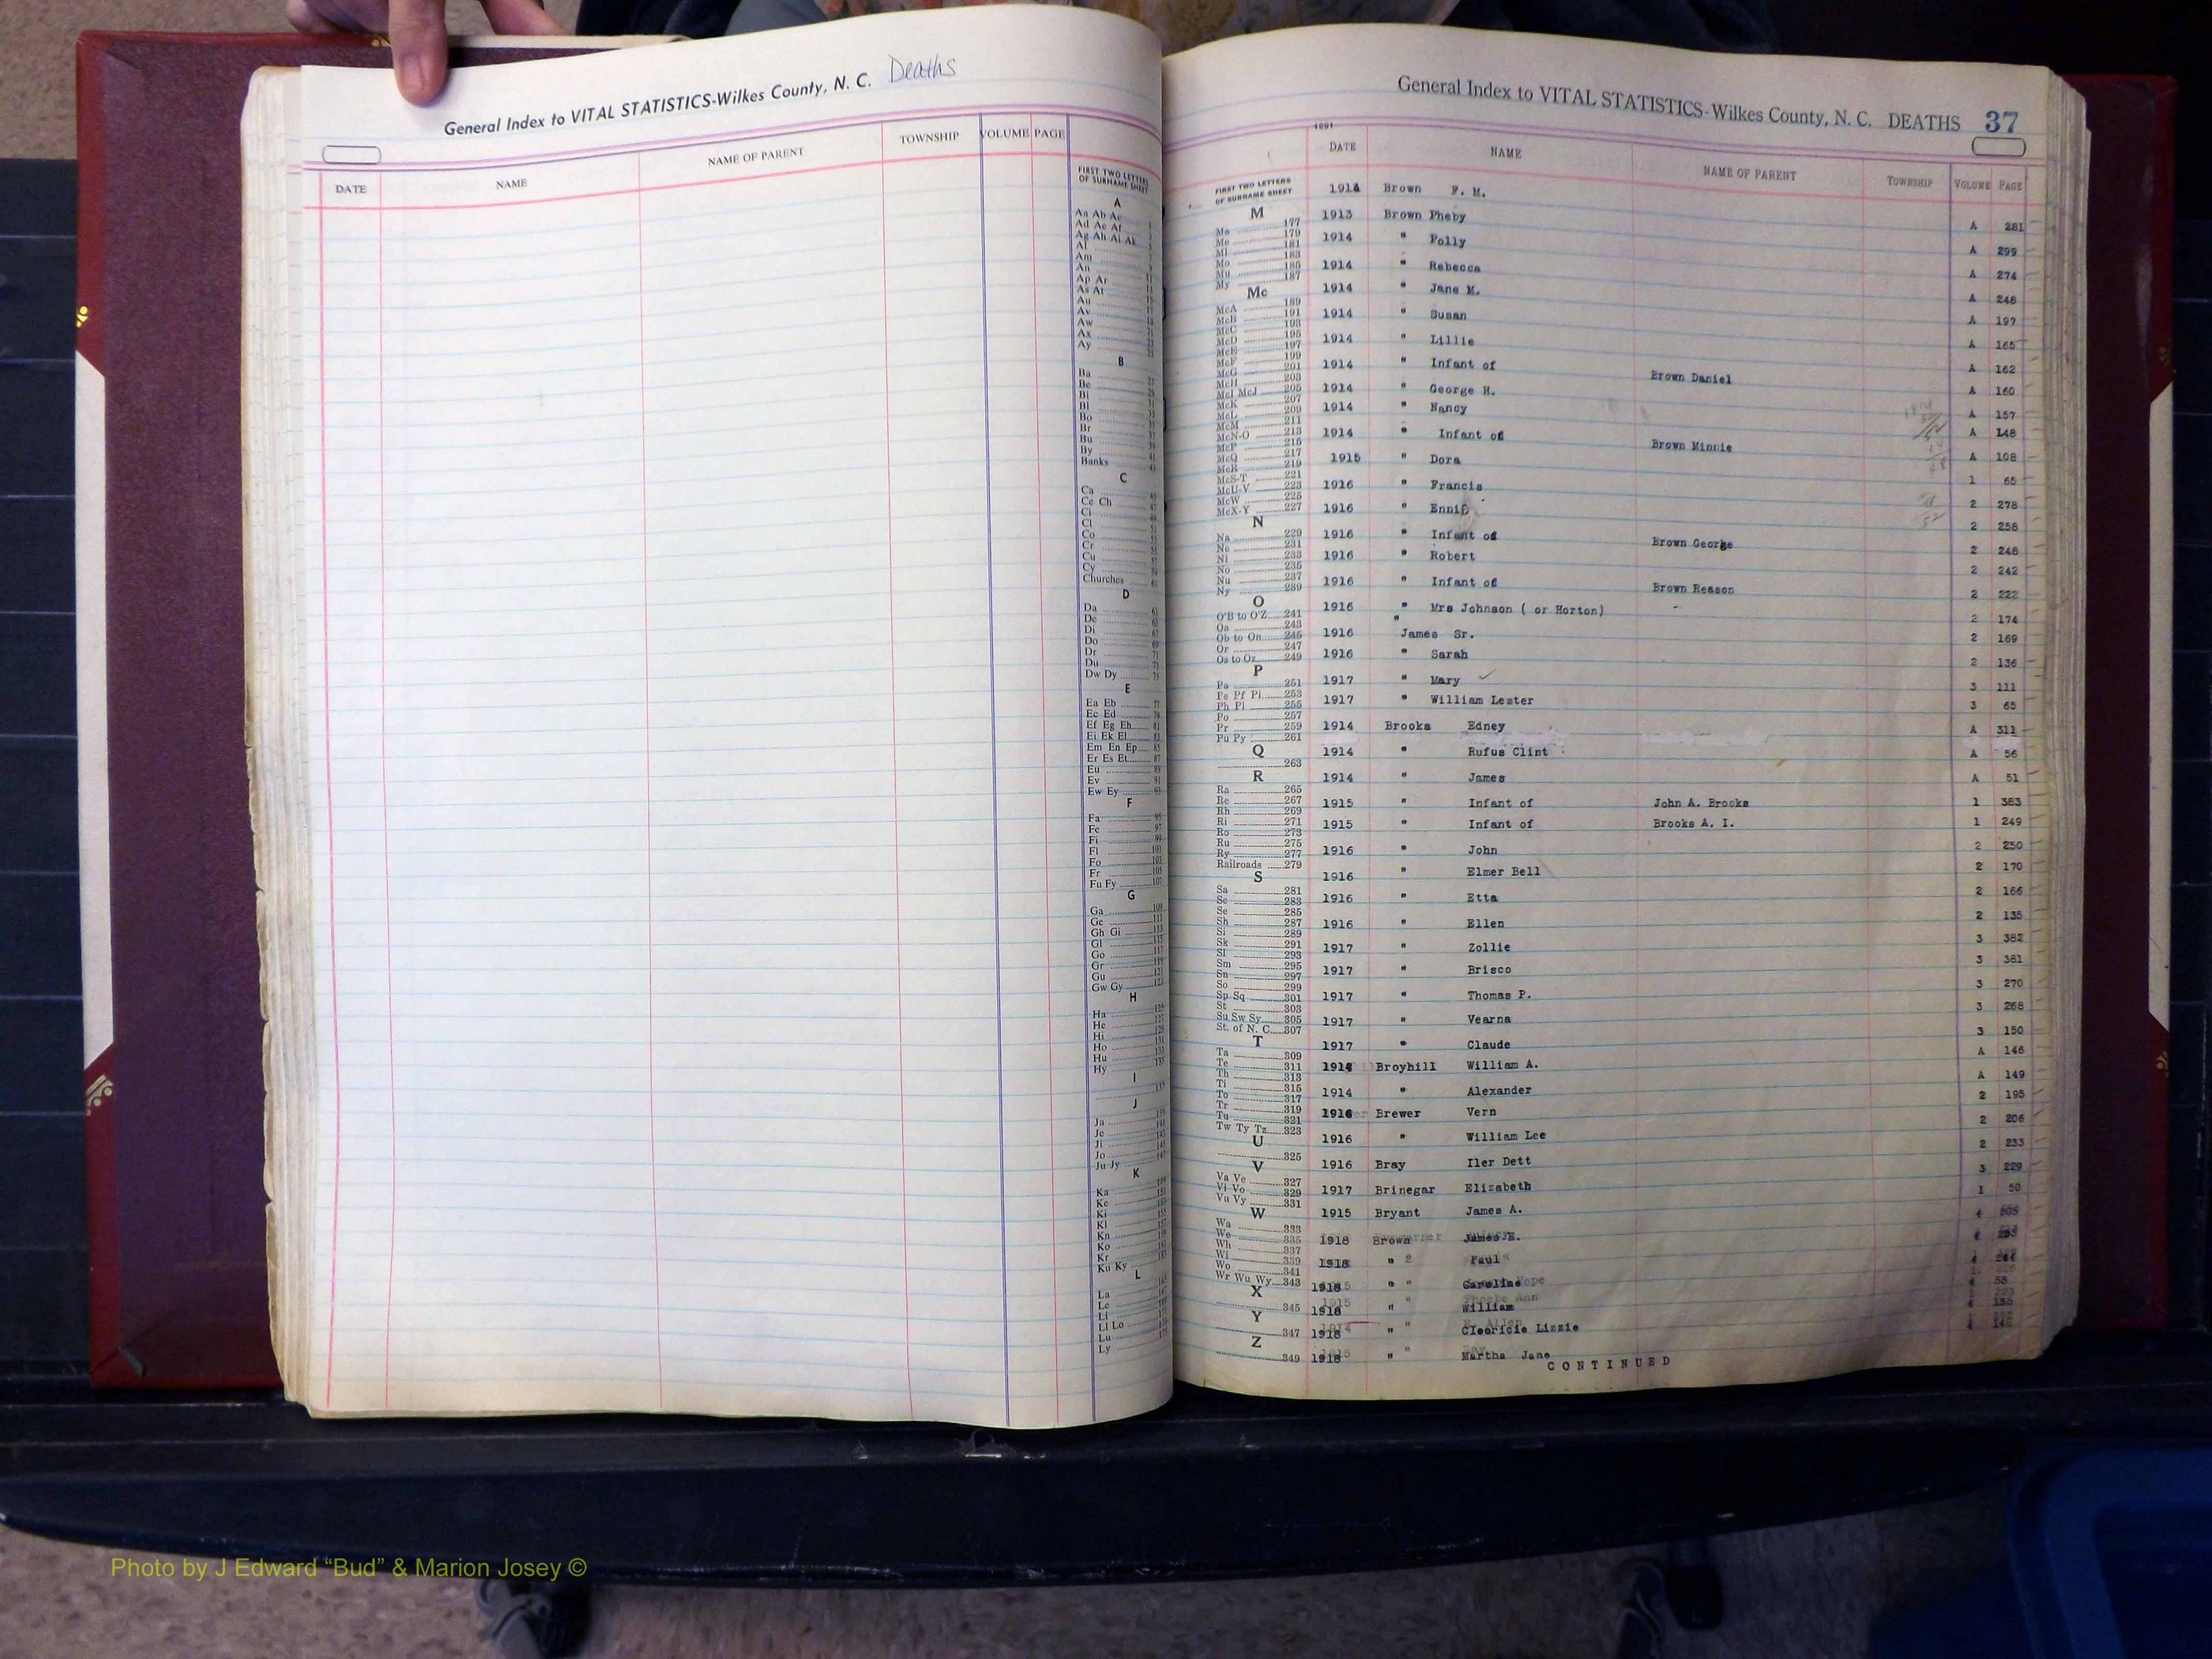 General Index to VITAL STATISTICS-Wilkes County, N. C. Deaths
DATE NAME NAME OF PARENT TOWNSHIP VOLUME PAGE
FIRST TWO LETTERS
OF SURNAME SHEET
A
Aa Ab Ac
Ad Ae Af
Ag Ah Ai Ak
Al
Am
An
Ap Ar
As At
Au
Av
Aw
Ax
Ay
B
Ba 27
Be 29
Bi 31
Bl 33
Bo 35
Br 37
Bu 39
By 41
Banks 43
C
Ca 45
Ce Ch 47
Ci 49
Cl 51
Co 53
Cr 55
Cu 57
Cy 59
Churches 61
D
Da 63
De 65
Di 67
Do 69
Dr 71
Du 73
Dw Dy 75
E
Ea Eb 77
Ec Ed 79
Ef Eg Eh 81
Ei Ek El 83
Em En Ep 85
Er Es Et 87
Eu 89
Ev 91
Ew Ey 93
F
Fa 95
Fe 97
Fi 99
Fl 101
Fo 103
Fr 105
Fu Fy 107
G
Ga 109
Ge 111
Gh Gi 113
Gl 115
Go 117
Gr 119
Gu 121
Gw Gy 123
H
Ha 125
He 127
Hi 129
Ho 131
Hu 133
Hy 135
I
137
J
Ja 139
Je 141
Ji 143
Jo 145
Ju Jy 147
K
Ka
Ke
Ki
Kl
Kn
Ko
Kr
Ku Ky
L
La
Le
Li
Ll Lo
Lu
Ly
General Index to VITAL STATISTICS-Wilkes County, N. C. DEATHS 37
1891
DATE NAME NAME OF PARENT TOWNSHIP VOLUME PAGE
FIRST TWO LETTERS
OF SURNAME SHEET
M
Ma 177
Me 179
Mi 181
Mo 183
Mu 185
My 187
Mc
McA 189
McB 191
McC 193
McD 195
McE 197
McF 199
McG 201
McH 203
McI McJ 205
McK 207
McL 209
McM 211
McN-O 213
McP 215
McQ 217
McR 219
McS-T 221
McU-V 223
McW 225
McX-Y 227
N
Na 229
Ne 231
Ni 233
No 235
Nu 237
Ny 239
O
O'B to O'Z 241
Oa 243
Ob to On 245
Or 247
Os to Oz 249
P
Pa 251
Pe Pf Pi 253
Ph Pl 255
Po 257
Pr 259
Pu Py 261
Q
263
R
Ra 265
Re 267
Rh 269
Ri 271
Ro 273
Ru 275
Ry 277
Railroads 279
S
Sa 281
Sc 283
Se 285
Sh 287
Si 289
Sk 291
Sl 293
Sm 295
Sn 297
So 299
Sp Sq 301
St 303
Su Sw Sy 305
St. of N. C. 307
T
Ta 309
Te 311
Th 313
Ti 315
To 317
Tr 319
Tu 321
Tw Ty Tz 323
U
325
V
Va Ve 327
Vi Vo 329
Vu Vy 331
W
Wa 333
We 335
Wh 337
Wi 339
Wo 341
Wr Wu Wy 343
X
345
Y
347
Z
349
1914 Brown F. M. A 281
1913 Brown Pheby A 299
1914 " Polly A 274
1914 " Rebecca A 248
1914 " Jane M. A 197
1914 " Susan A 165
1914 " Lillie A 162
1914 " Infant of Brown Daniel A 160
1914 " George H. A 157
1914 " Nancy A 148
1914 " Infant of Brown Minnie A 108
1915 " Dora 1 65
1916 " Francis 2 278
1916 " Ennis 2 258
1916 " Infant of Brown George 2 248
1916 " Robert 2 242
1916 " Infant of Brown Reason 2 222
1916 " Mrs Johnson ( or Horton) 2 174
1916 " James Sr. 2 169
1916 " Sarah 2 136
1917 " Mary 3 111
1917 " William Lester 3 65
1914 Brooks Edney A 311
1914 " Rufus Clint A 56
1914 " James A 51
1915 " Infant of John A. Brooks 1 383
1915 " Infant of Brooks A. I. 1 249
1916 " John 2 250
1916 " Elmer Bell 2 170
1916 " Etta 2 166
1916 " Ellen 2 135
1917 " Zollie 3 382
1917 " Brisco 3 381
1917 " Thomas P. 3 270
1917 " Vearna 3 268
1917 " Claude 3 150
1914 Broyhill William A. A 146
1914 " Alexander A 149
1916 Brewer Vern 2 195
1916 " William Lee 2 206
1916 Bray Iler Dett 2 233
1917 Brinegar Elizabeth 3 229
1915 Bryant James A. 1 50
1918 Brown James E. 4
1918 " Paul 4
1918 " Caroline 4 55
1918 " William 4
1918 " Cleoricie Lizzie 4
1918 " Martha Jane
CONTINUED
Photo by J Edward “Bud” & Marion Josey ©